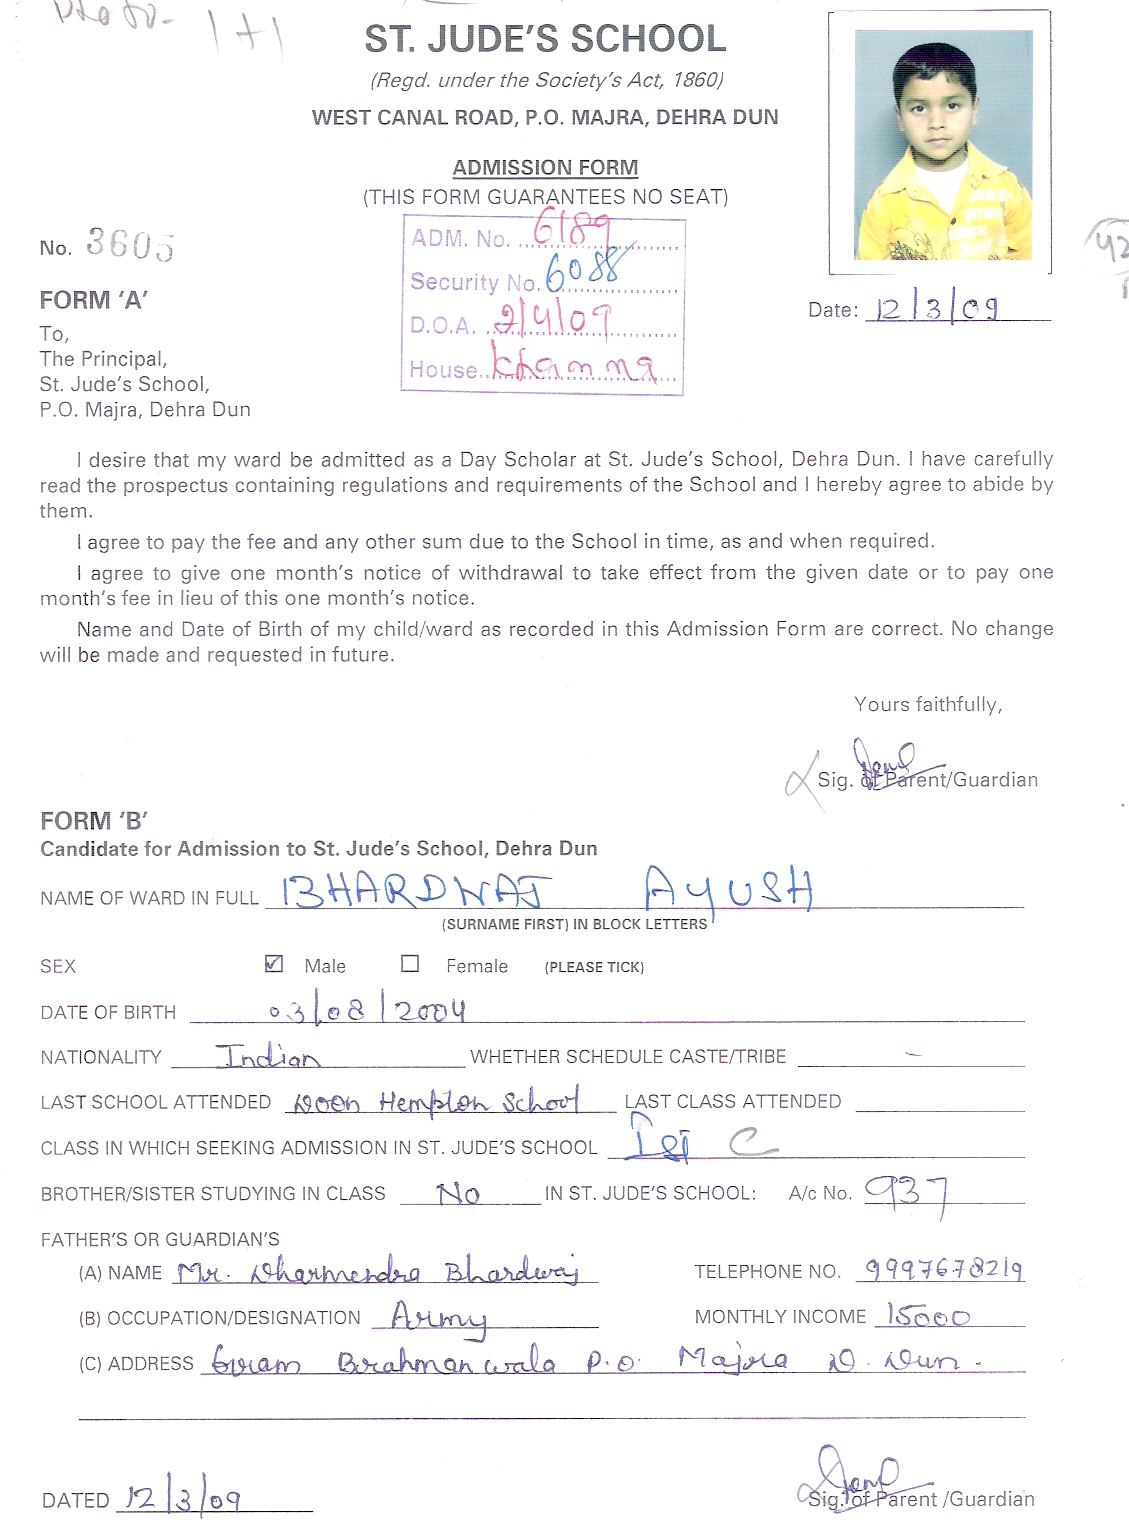 1+1
ST. JUDE'S SCHOOL
(Regd. under the Society's Act, 1860)
WEST CANAL ROAD, P.O. MAJRA, DEHRA DUN
ADMISSION FORM
(THIS FORM GUARANTEES NO SEAT)
No. 3605
ADM. No. 6189
Security No. 6088
D.O.A. 2/4/09
House Khanna
42
Date: 12/3/09
FORM 'A'
To,
The Principal,
St. Jude's School,
P.O. Majra, Dehra Dun
I desire that my ward be admitted as a Day Scholar at St. Jude's School, Dehra Dun. I have carefully
read the prospectus containing regulations and requirements of the School and I hereby agree to abide by
them.
I agree to pay the fee and any other sum due to the School in time, as and when required.
I agree to give one month's notice of withdrawal to take effect from the given date or to pay one
month's fee in lieu of this one month's notice.
Name and Date of Birth of my child/ward as recorded in this Admission Form are correct. No change
will be made and requested in future.
Yours faithfully,
Sig. of Parent/Guardian
FORM 'B'
Candidate for Admission to St. Jude's School, Dehra Dun
NAME OF WARD IN FULL BHARDWAJ AYUSH
(SURNAME FIRST) IN BLOCK LETTERS
SEX Male Female (PLEASE TICK)
DATE OF BIRTH 03/08/2004
NATIONALITY Indian WHETHER SCHEDULE CASTE/TRIBE –
LAST SCHOOL ATTENDED Doon Hempton School LAST CLASS ATTENDED
CLASS IN WHICH SEEKING ADMISSION IN ST. JUDE'S SCHOOL Ist C
BROTHER/SISTER STUDYING IN CLASS No IN ST. JUDE'S SCHOOL: A/c No. 937
FATHER'S OR GUARDIAN'S
(A) NAME Mr. Dharmendra Bhardwaj TELEPHONE NO. 9997678219
(B) OCCUPATION/DESIGNATION Army MONTHLY INCOME 15000
(C) ADDRESS Gram Brahmanwala P.O. Majra D. Dun.
DATED 12/3/09
Sig. of Parent /Guardian